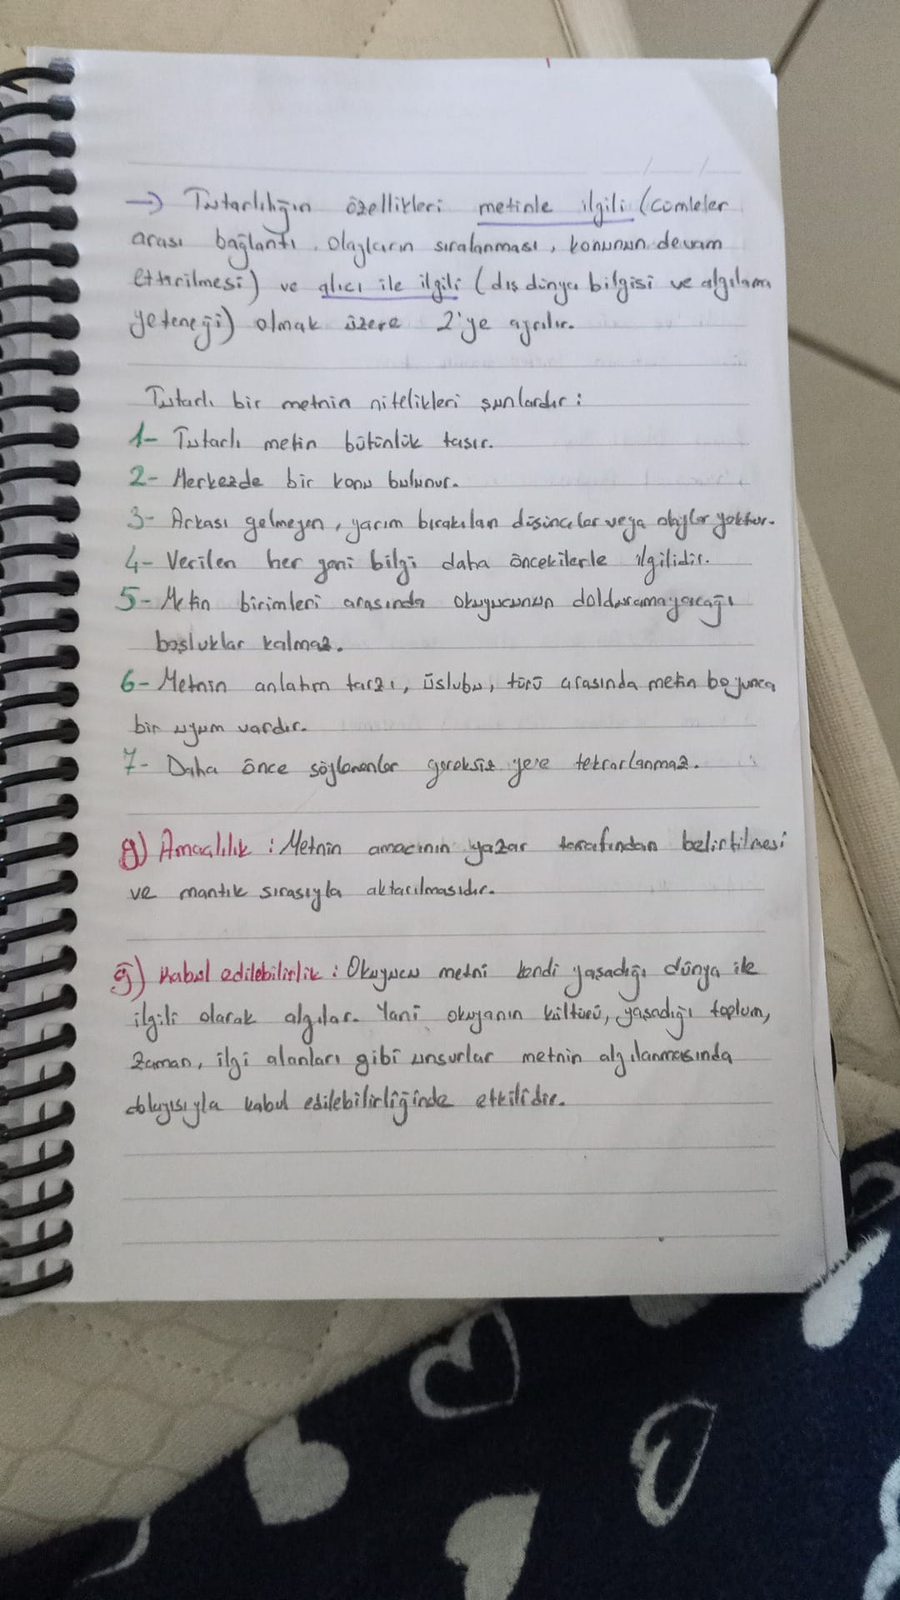 → Tutarlılığın özellikleri metinle ilgili (cümleler
arası bağlantı, olayların sıralanması, konunun devam
ettirilmesi) ve alıcı ile ilgili (dış dünya bilgisi ve algılama
yeteneği) olmak üzere 2'ye ayrılır.
Tutarlı bir metnin nitelikleri şunlardır:
1- Tutarlı metin bütünlük taşır.
2- Merkezde bir konu bulunur.
3- Arkası gelmeyen, yarım bırakılan düşünceler veya olaylar yoktur.
4- Verilen her yeni bilgi daha öncekilerle ilgilidir.
5- Metin birimleri arasında okuyucunun dolduramayacağı
boşluklar kalmaz.
6- Metnin anlatım tarzı, üslubu, türü arasında metin boyunca
bir uyum vardır.
7- Daha önce söylenenler gereksiz yere tekrarlanmaz.
g) Amaçlılık: Metnin amacının yazar tarafından belirtilmesi
ve mantık sırasıyla aktarılmasıdır.
ğ) Kabul edilebilirlik: Okuyucu metni kendi yaşadığı dünya ile
ilgili olarak algılar. Yani okuyanın kültürü, yaşadığı toplum,
zaman, ilgi alanları gibi unsurlar metnin algılanmasında
dolayısıyla kabul edilebilirliğinde etkilidir.